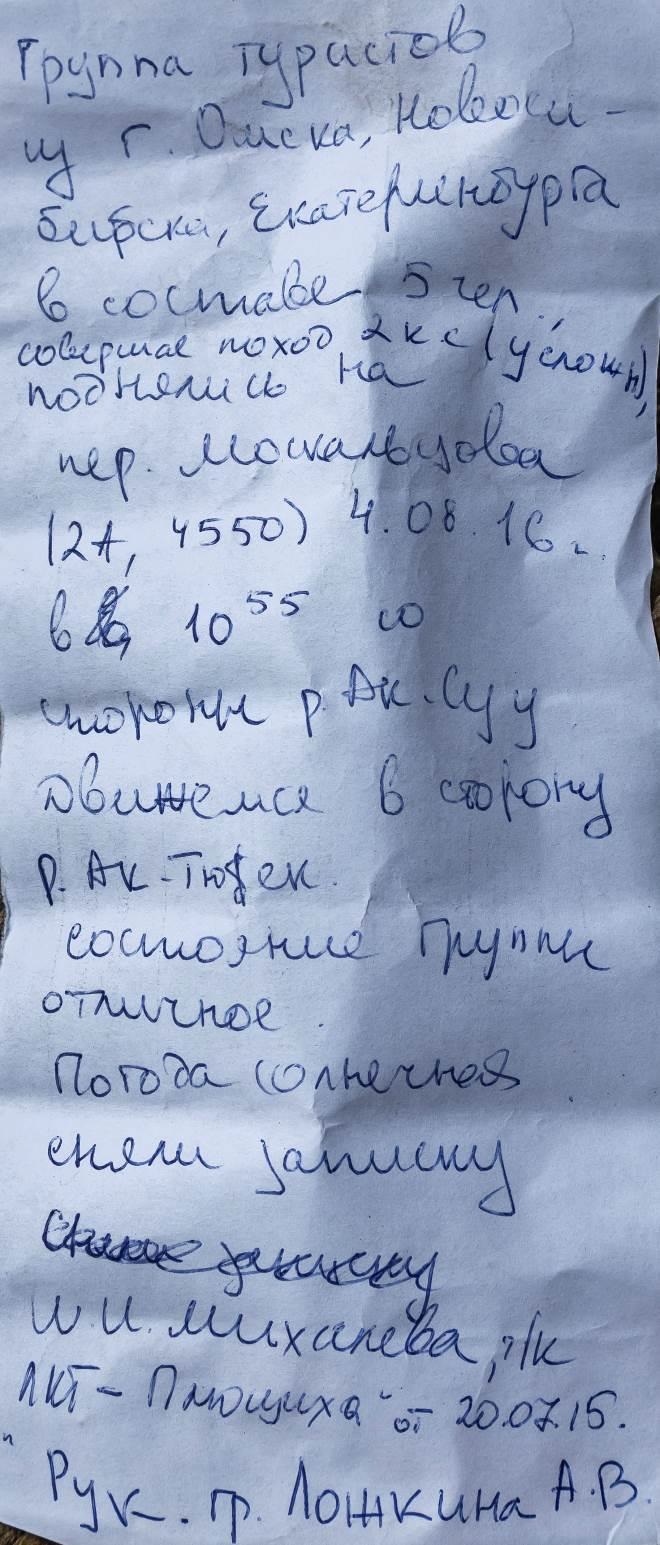 Группа туристов
из г. Омска, Новоси-
бирска, Екатеринбурга
в составе 5 чел.
совершая поход 2 к с (усложн),
поднялись на
пер. Москальцова
(2А, 4550) 4.08.16 г.
в 10 55 со
стороны р. Ак-Суу
Движемся в сторону
р. Ак-Тюбек.
состояние группы
отличное.
Погода солнечная
сняли записку
И.И. Михалева, т/к
ЛКТ - Плющиха" от 20.07.15.
" Рук. гр. Ложкина А.В.